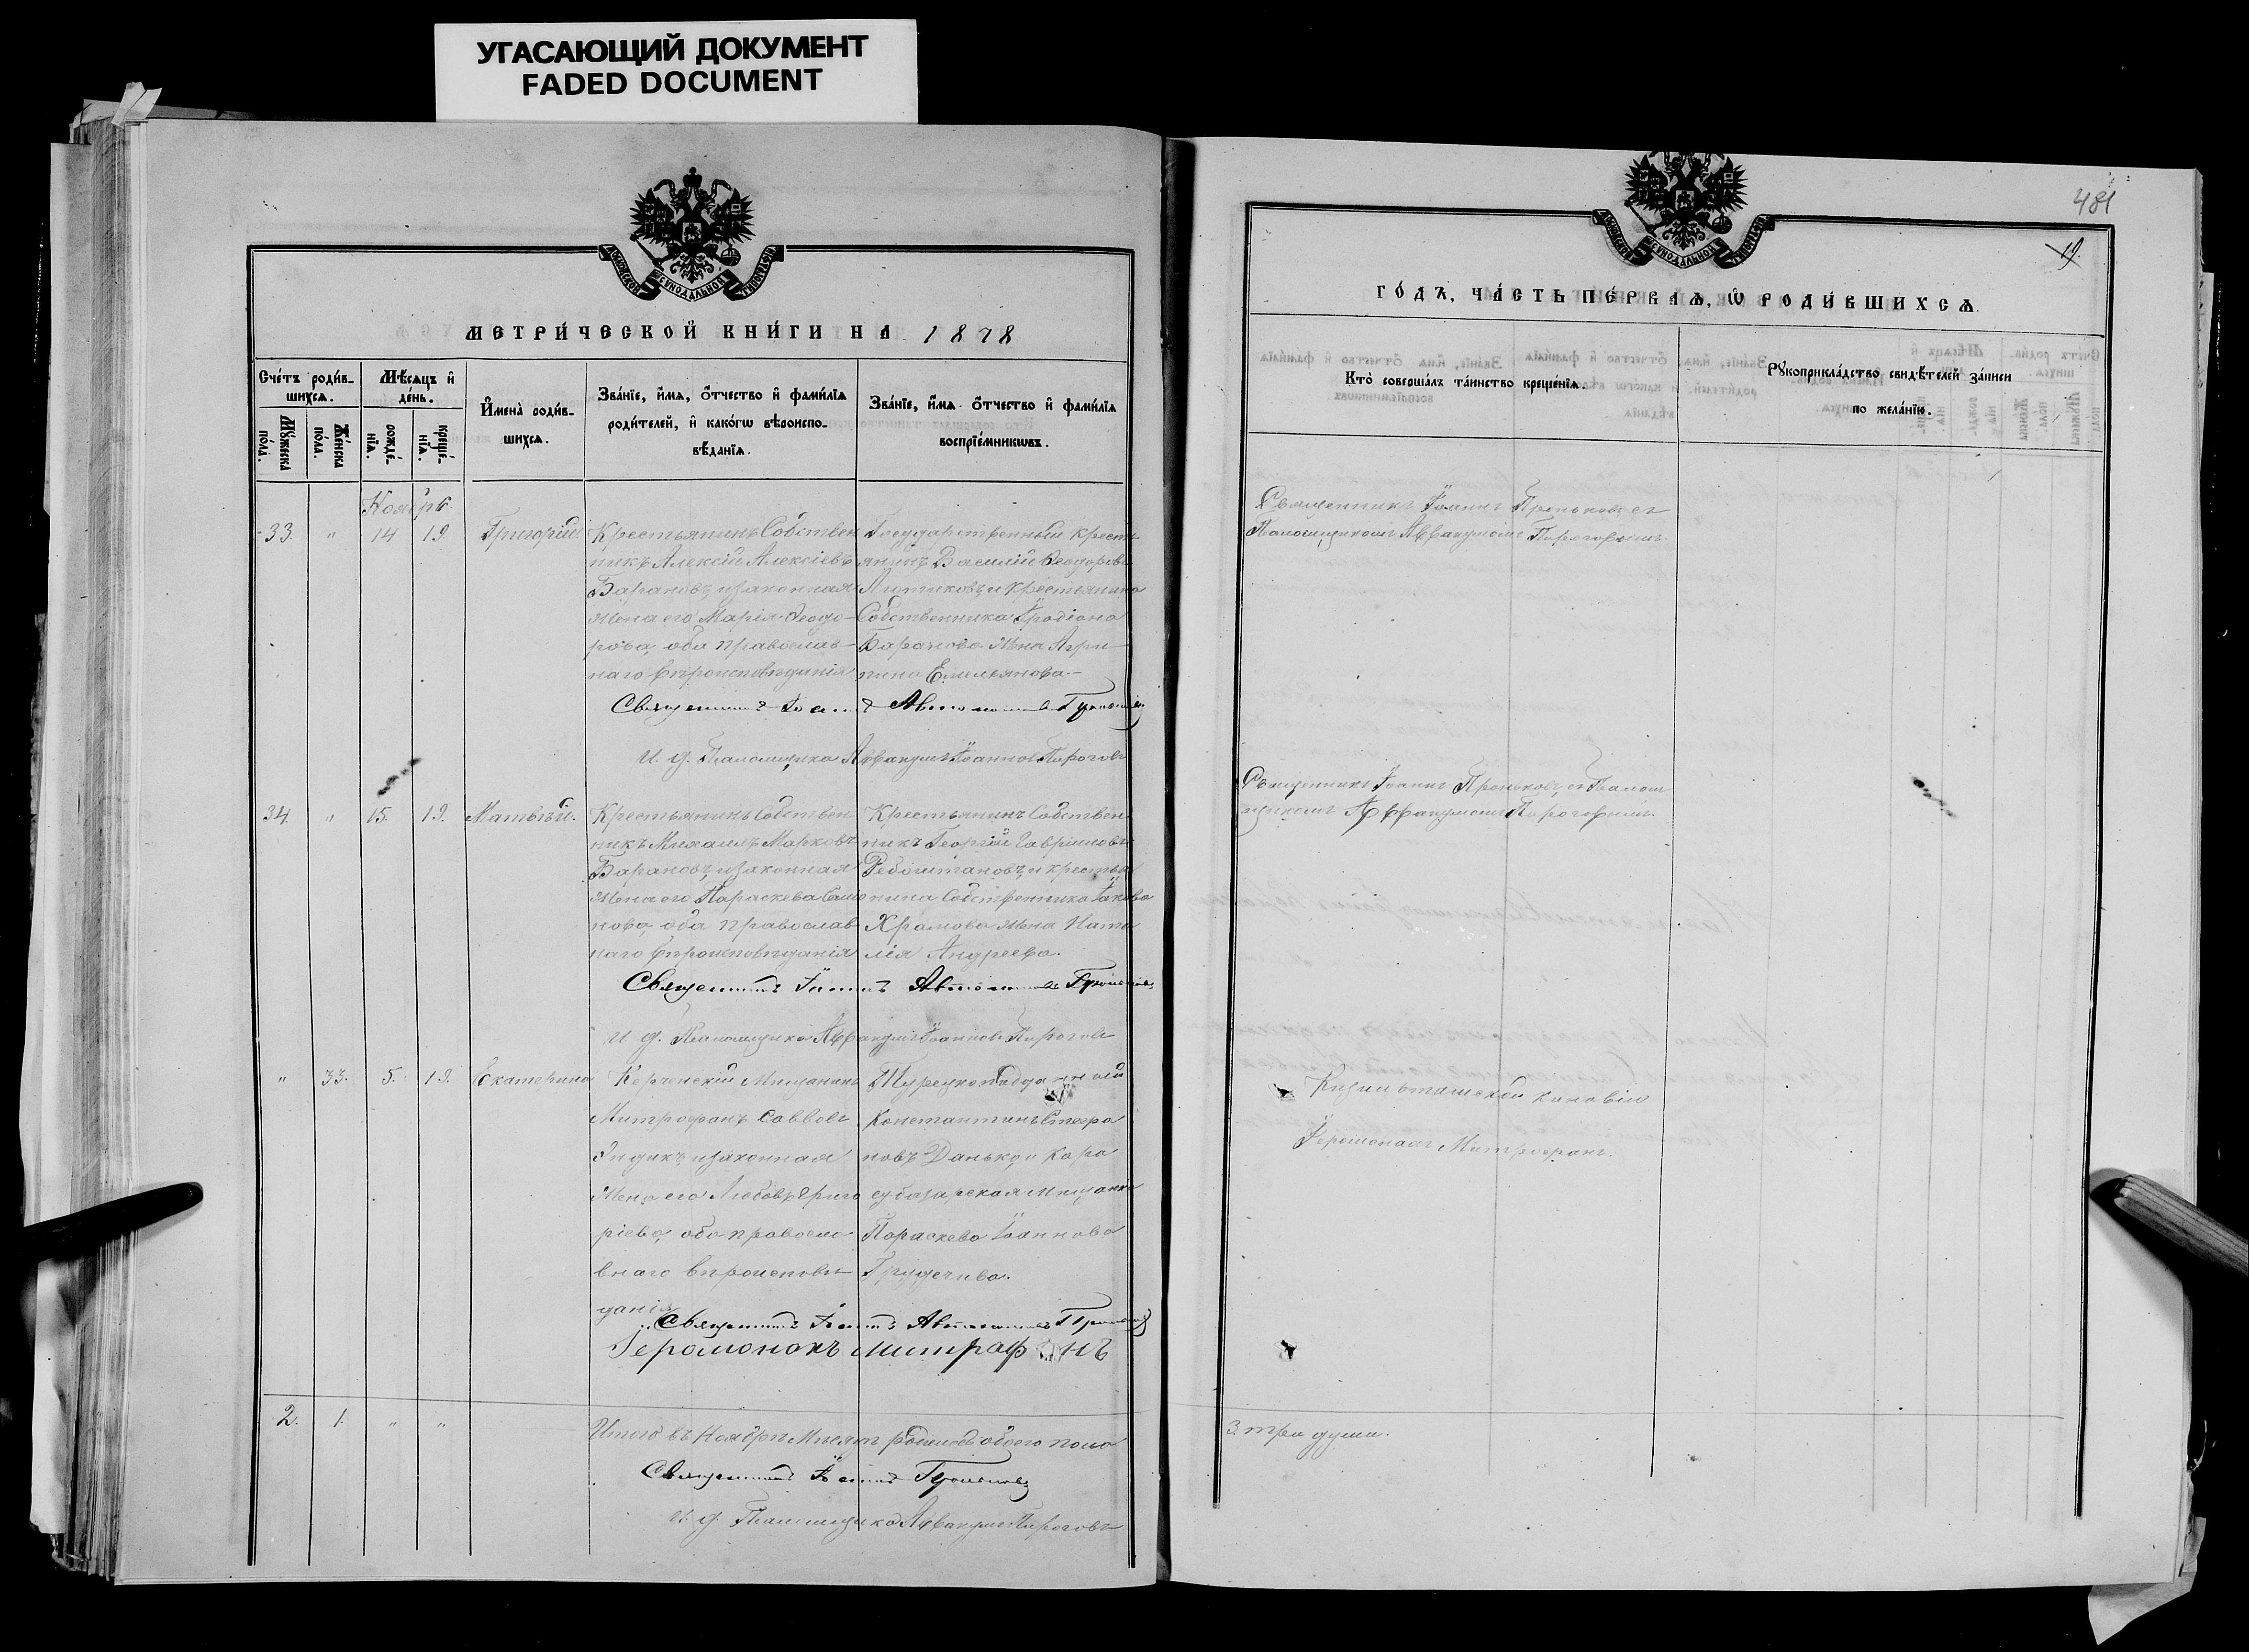 УГАСАЮЩИЙ ДОКУМЕНТ
FADED DOCUMENT
МЕТРИ́ЧЕСКОЙ КНИ́ГИ НА 1878
Сче́тъ роди́в-
шихсѧ.
Мѣ́сѧцъ и҆
де́нь.
Мꙋ́жеска
по́ла.
Же́нска
по́ла.
рожде́-
нїѧ.
креще́-
нїѧ.
И҆мена̀ роди́в-
шихсѧ.
Зва́нїе, и҆́мѧ, ѻ҆́тчество и҆ фами́лїѧ
роди́телей, и҆ како́гѡ вѣроиспо-
вѣ́данїѧ.
Зва́нїе, и҆́мѧ ѻ҆́тчество и҆ фами́лїѧ
воспрїе́мникѡвъ.
Ноябрь
33. " 14 19. Григорій
Крестьянинъ Собствен
никъ Алексій Алексіевъ
Барановъ, и законная
жена его Марія Феодо-
рова, оба православ-
наго вѣроисповѣданія
Государственный крестъ
янинъ Василій Феодоровъ
Лютиковъ и крестьянина
Собственника Іродіона
Баранова жена Агри-
пина Емельянова.
Священникъ Іоаннъ
И. д. Паломщика Аввакумъ Іоанновъ Пироговъ
34. " 15. 19. Матвѣй.
Крестьянинъ Собствен
никъ Михаилъ Марковъ
Барановъ, и законная
жена его Параскева Симо
нова, оба православ
наго вѣроисповѣданія
Крестьянинъ Собствен
никъ Георгій Гавриловъ
и крестья
нина Собственника Іакова
Храмова жена Ната
лія Андреева.
Священникъ Іоаннъ
И. д. Паломщика Аввакумъ Іоанновъ Пироговъ
" 33. 5. 19. Екатерина
Керченскій Мещанинъ
Митрофанъ Саввовъ
и законная
жена его Любовь Григо
ріева, оба правосла
внаго вѣроисповѣ
данія
Турецкоподданный
Константинъ Стефа
новъ Данько, и Кара
субазарская мещанка
Параскева Іоаннова
Священникъ Іоаннъ
Іеромонахъ Митрафанъ
2. 1. " "
Итого въ Ноябрѣ Мѣсяцѣ обоего пола
Священникъ Іоаннъ
И. д. Паломщика Аввакумъ Пироговъ
481
19.
ГО́ДЪ, ЧА́СТЬ ПЕ́РВАѦ, Ѽ РОДИ́ВШИХСѦ.
Кто̀ соверша́лъ та́инство креще́нїѧ.
Рꙋкоприкла́дство свидѣ́телей за́писи
по жела́нїю.
Священникъ Іоаннъ Проньковъ, съ
Паломщикомъ Аввакумомъ Пироговымъ.
Священникъ Іоаннъ Проньковъ, съ Палом
щикомъ Аввакумомъ Пироговымъ.
Кизильташской киновіи
Іеромонахъ Митрофанъ.
3. три души.